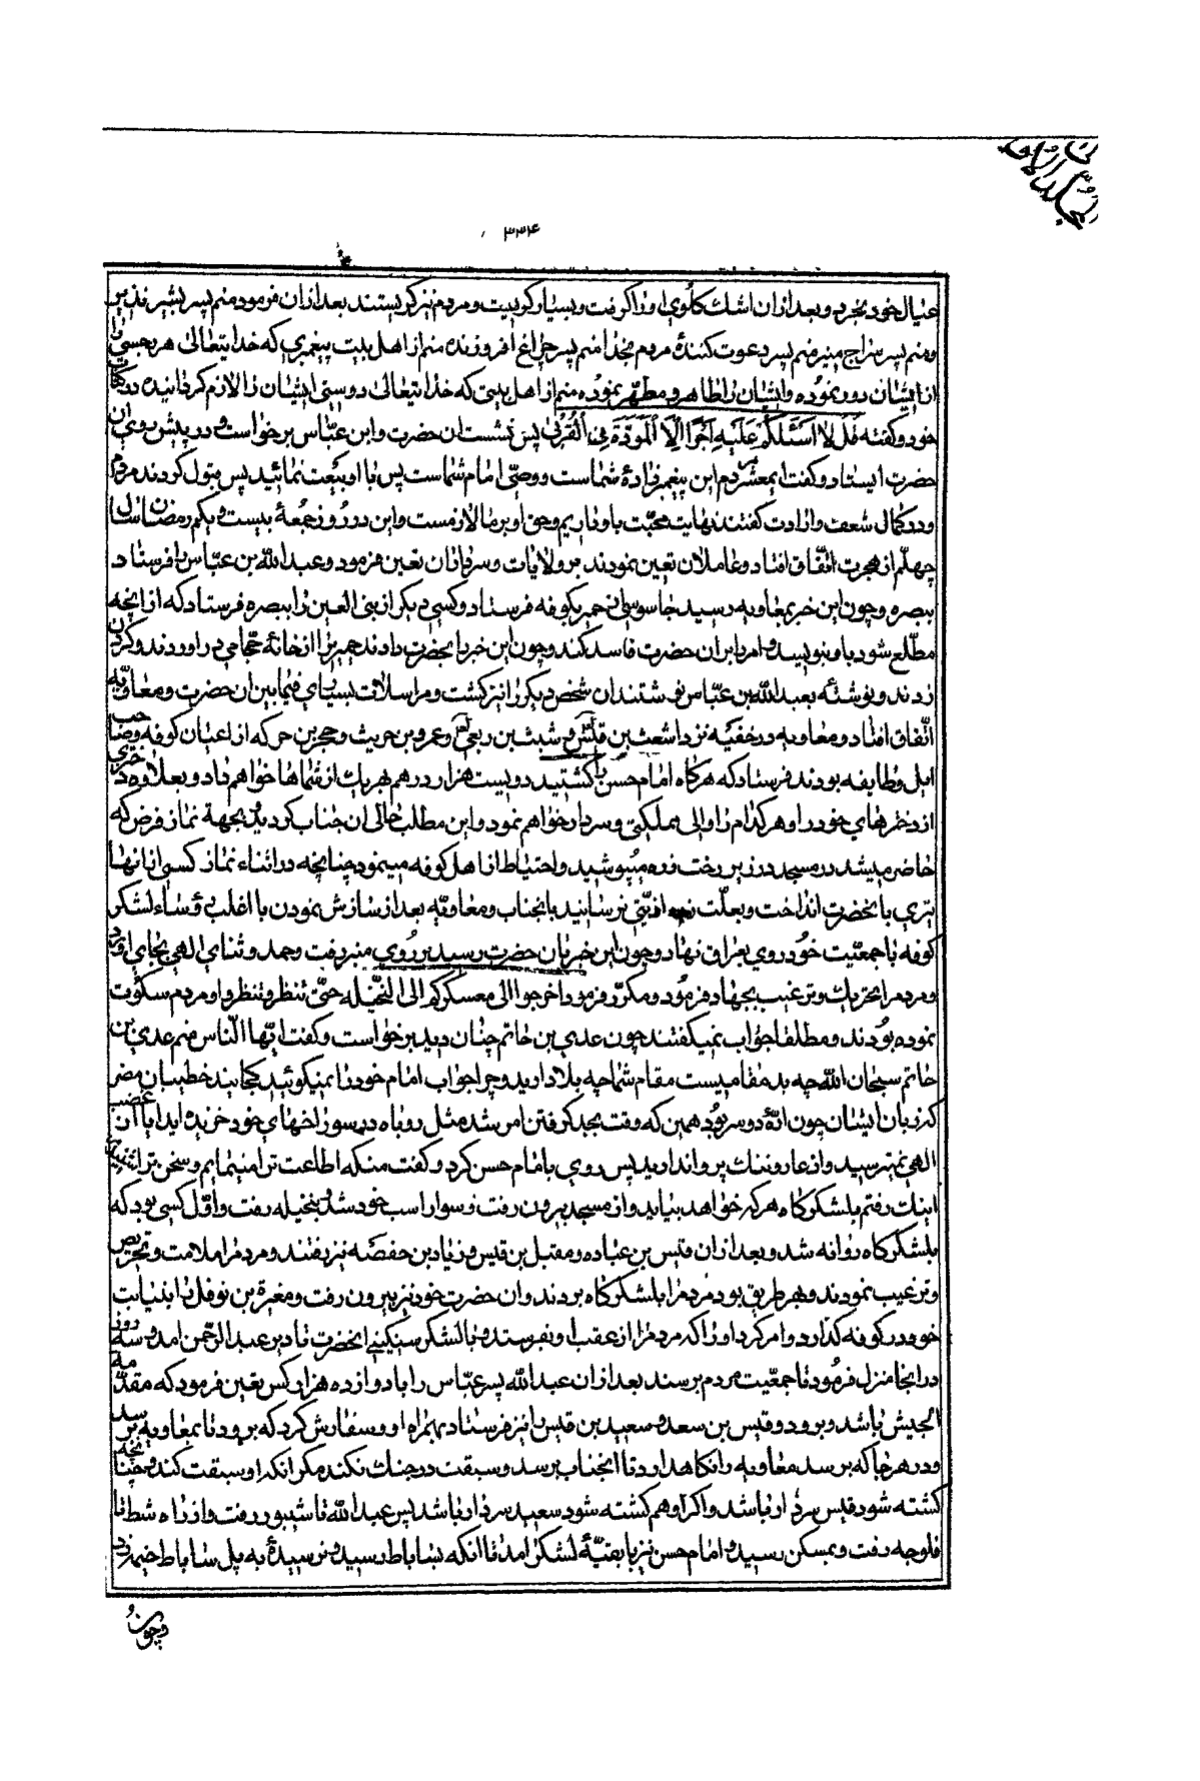 المجلد الاول
۳۳۴
عیال خود بخرد و بعد از ان اشك كلوی او را كرفت و بسیار كریست و مردم نیز كریستند بعد از ان فرمود منم پسر بشیر نذیر
و منم پسر سراج منیر منم پسر دعوت كنندهٔ مردم بخدا منم پسر چراغ افروزنده منم از اهل بیت پیغمبری كه خدایتعالی هر رجسی را
از ایشان دور نموده و ایشان را طاهر و مطهر نموده منم از اهل بیتی كه خدایتعالی دوستی ایشان را لازم كردانیده در كتاب
خود و كفته قُل لا اَسئَلُكُم عَلَیهِ اَجرًا اِلَّا المَوَدَّةَ فِی القُربی پس نشست ان حضرت و ابن عباس برخواست و در پیش روی ان
حضرت ایستاد و كفت ایمعشر مردم این پیغمبرزادهٔ شماست و وصی امام شماست پس با او بیعت نمائید پس قبول كردند مردم
و در كمال شعف و ارادت كفتند نهایت محبت باو داریم و حق او بر ما لازمست و این در روز جمعهٔ بیست و یكم رمضان سال
چهلم از هجرت اتفاق افتاد و عاملان تعین نمودند بر ولایات و سرداران تعین فرمود و عبد الله بن عباس را فرستاد
ببصره و چون این خبر بمعاویه رسید جاسوسی از حمیر بكوفه فرستاد و كسی دیكر از بنی العین را ببصره فرستاد كه از انچه
مطلع شود باو بنویسد و امر را بر ان حضرت فاسد كند و چون این خبر را بحضرت دادند حمیر را از خانهٔ حجامی در اوردند و كردن
زدند و نوشته بعبد الله بن عباس نوشتند ان شخص دیكر را نیز كشت و مراسلات بسیاری فیما بین ان حضرت و معاویه
اتفاق افتاد و معاویه در خفیه نزد اشعث بن قیس و شبث بن ربعی و عمرو بن حریث و حجر بن حر كه از اعیان كوفه و صاحب
ایل و طایفه بودند فرستاد كه هر كاه امام حسن را كشتید دویست هزار درهم بهر یك از شماها خواهم داد و بعلاوه دختری
از دخترهای خود را و هر كدام را والی مملكتی و سردار خواهم نمود و این مطلب حالی ان جناب كردید و بجهة نماز فرض كه
حاضر میشد در مسجد در زیر رخت زره میپوشید و احتیاط از اهل كوفه مینمود چنانچه در اثناء نماز كسی از انها
تیری بانحضرت انداخت و بعلت زره اذیتی نرسانید بانجناب و معاویه بعد از سازش نمودن با اغلب رؤساء لشكر
كوفه با جمعیت خود روی بعراق نهاد و چون این خبر بان حضرت رسید بر روی منبر رفت و حمد و ثنای الهی بجای اورد
و مردم را تحریك و ترغیب بجهاد فرمود و مكرر فرمود اخرجوا الی معسكركم الی النخیله حتی ننظر و تنظروا و مردم سكوت
نموده بودند و مطلقا جواب نمیكفتند چون عدی بن حاتم چنان دید برخواست و كفت ایها الناس منم عدی بن
حاتم سبحان الله چه بد مقامیست مقام شما چه بلا دارید و چرا جواب امام خود را نمیكوئید كجایند خطیبان مضر
كه زبان ایشان چون ارّهٔ دو سر بود همین كه وقت بجد كرفتن امر شد مثل روباه در سوراخهای خود خزیده اید ایا از غضب
الهی نمیترسید و از عار و ننك پروا ندارید پس روی بامام حسن كرد و كفت منكه اطاعت ترا مینمایم و سخن ترا شنیدم
اینك رفتم بلشكركاه هر كه خواهد بیاید و از مسجد بیرون رفت و سوار اسب خود شد و بنخیله رفت و اول كسی بود كه
بلشكركاه روانه شد و بعد از ان قیس بن عباده و مقبل بن قیس و زیاد بن حفصه نیز رفتند و مردم را ملامت و تحریص
و ترغیب نمودند و بهر طریق بود مردم را بلشكركاه بردند و ان حضرت خود نیز بیرون رفت و مغیرة بن نوفل را بنیابت
خود در كوفه كذارد و امر كرد او را كه مردم را از عقب او بفرستد و با لشكر سنكینی انحضرت تا دیر عبد الرحمن امد و سه روز
در انجا منزل فرمود تا جمعیت مردم برسند بعد از ان عبد الله پسر عباس را با دوازده هزار كس تعین فرمود كه مقدمه
الجیش باشد و برود و قیس بن سعد و سعید بن قیس را نیز فرستاد بهمراه او و سفارش كرد كه برود تا بمعاویه برسد
و در هر جا كه برسد معاویه را نكاهدارد تا انجناب برسد و سبقت در جنك نكند مكر انكه او سبقت كند و چنانچه
كشته شود قیس سردار باشد و اكر او هم كشته شود سعید سردار باشد پس عبد الله تا شیبور رفت و از راه شط تا
فلوجه رفت و بمسكن رسید و امام حسن نیز با بقیهٔ لشكر امد تا انكه بساباط رسید و نرسیدهٔ به پل ساباط خیمه زد
و چون